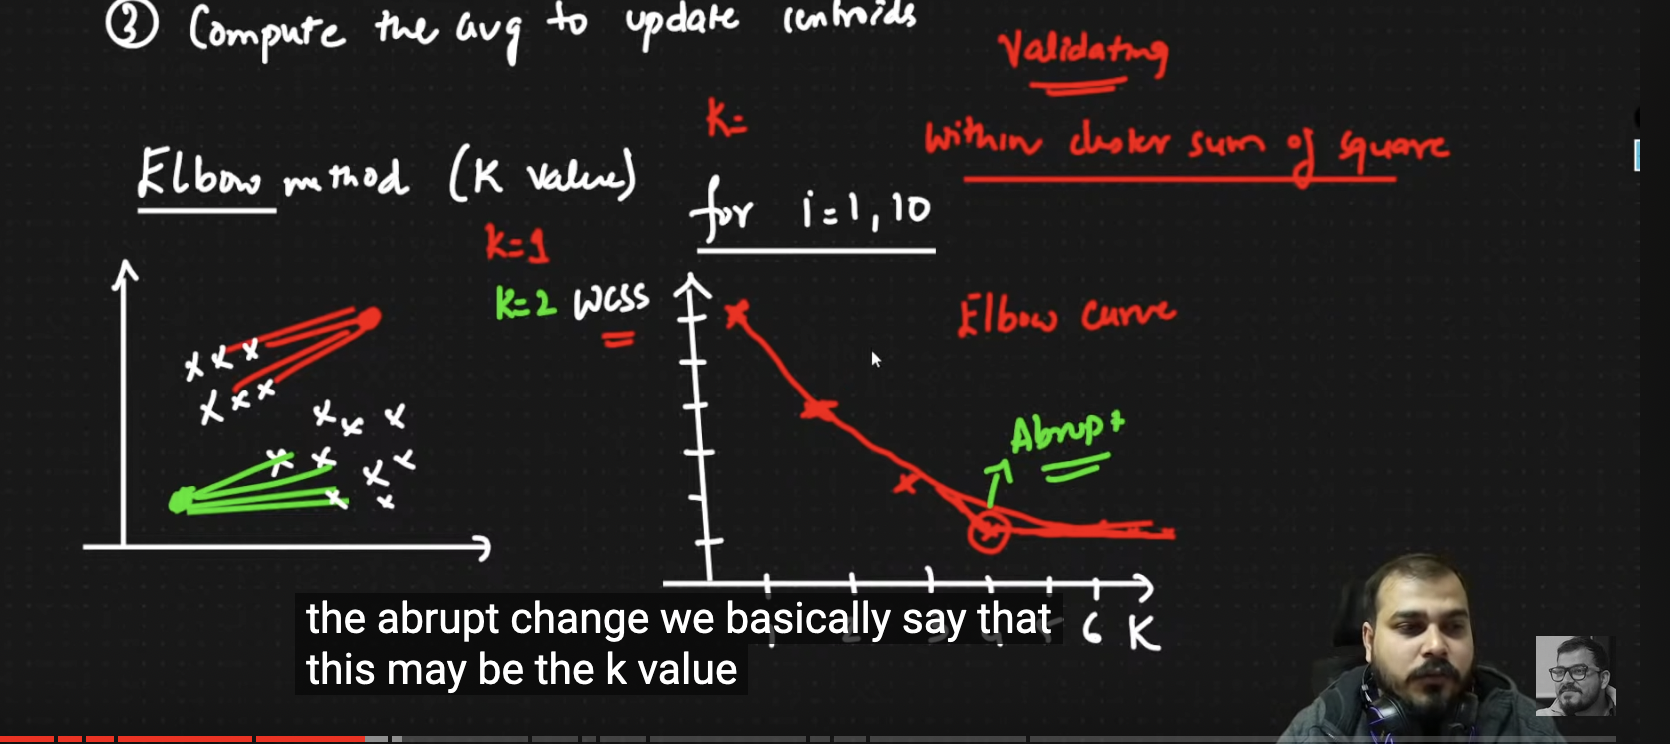 ③ Compute the avg to update centroids
Validating
K=
Within cluster sum of square
Elbow method (K value)
for i=1,10
K=1
K=2 WCSS
Elbow curve
Abrupt
6 K
the abrupt change we basically say that
this may be the k value